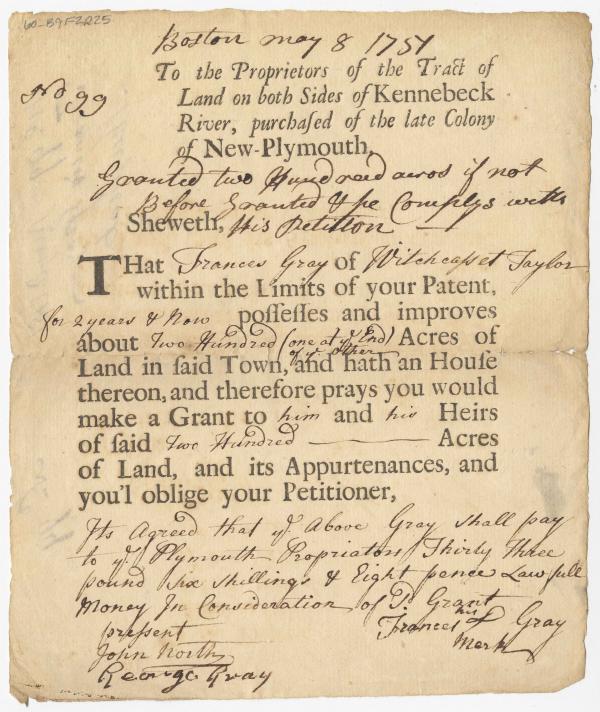 60-B9F2R25
Boston may 8 1757
No 99
To the Proprietors of the Tract of
Land on both Sides of Kennebeck
River, purchaſed of the late Colony
of New-Plymouth,
Granted two Hundreed acros if not
Before Granted & he Complys with
Sheweth, His Petition
THat Frances Gray of Witchcasset Taylor
within the Limits of your Patent,
for 2 years & Now poſſeſſes and improves
about Two Hundred (one at ye End) Acres of
of ye other
Land in ſaid Town, and hath an Houſe
thereon, and therefore prays you would
make a Grant to him and his Heirs
of ſaid Two Hundred Acres
of Land, and its Appurtenances, and
you'l oblige your Petitioner,
Its Agreed that ye Above Gray shall pay
to ye Plymouth Propriators Thirty Three
pound Six Shillings & Eight pence Lawfull
Money In Consideration of Sd Grant
present
his
Frances Gray
Mark
John North
George Gray